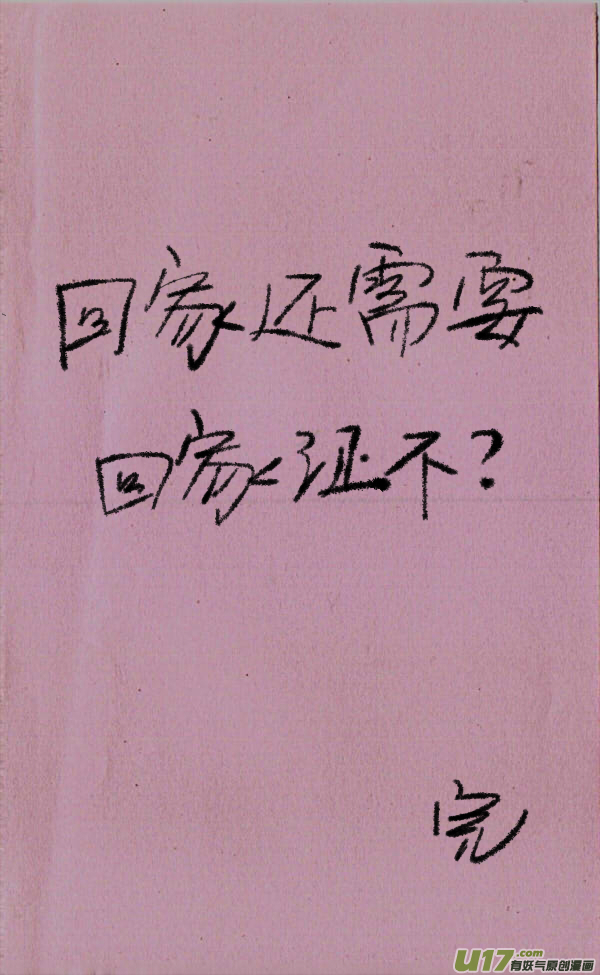 回家还需要
回家证不?
完
U17.com
有妖气原创漫画